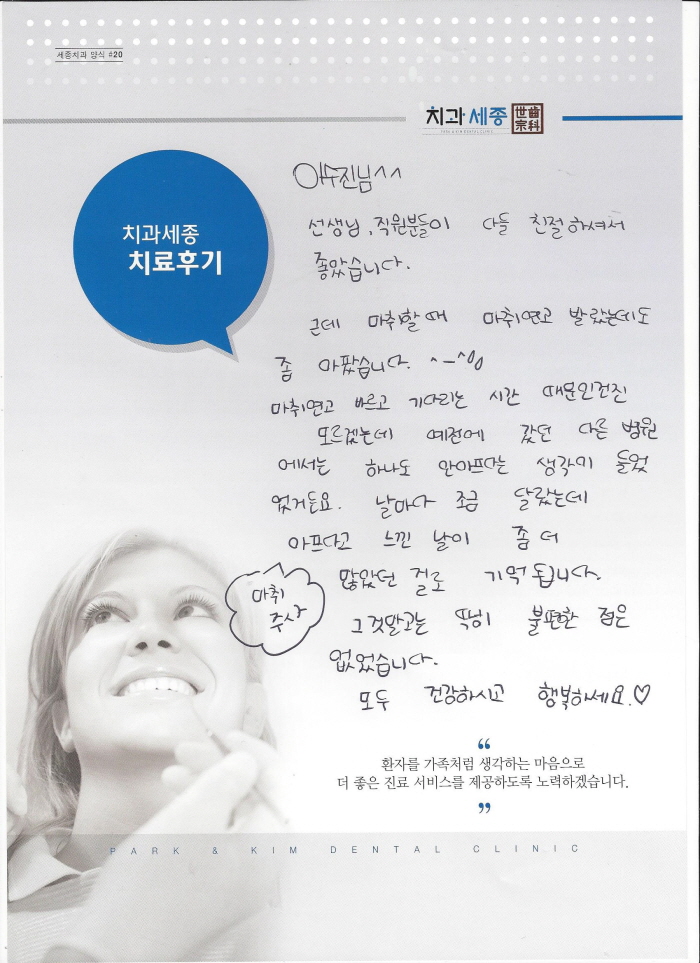 세종치과 양식 #20
치과세종 世宗齒科
PARK & KIM DENTAL CLINIC
치과세종
치료후기
이수진님^^
선생님, 직원분들이 다들 친절하셔서
좋았습니다.
근데 마취할 때 마취연고 발랐는데도
좀 아팠습니다. ^-^;;
마취연고 바르고 기다리는 시간 때문인건진
모르겠는데 예전에 갔던 다른 병원
에서는 하나도 안아프다는 생각이 들었
었거든요. 날마다 조금 달랐는데
아프다고 느낀 날이 좀 더
많았던 걸로 기억됩니다.
마취
주사
그것말고는 딱히 불편한 점은
없었습니다.
모두 건강하시고 행복하세요.♡
“
환자를 가족처럼 생각하는 마음으로
더 좋은 진료 서비스를 제공하도록 노력하겠습니다.
”
PARK & KIM DENTAL CLINIC